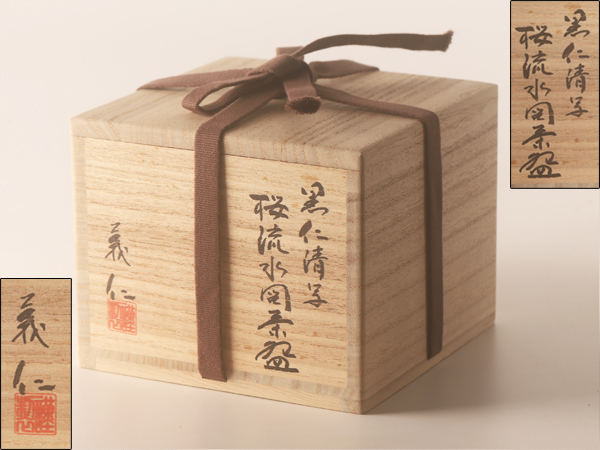 黒仁清写
桜流水図茶盌
義仁
黒仁清写
桜流水図茶盌
義仁